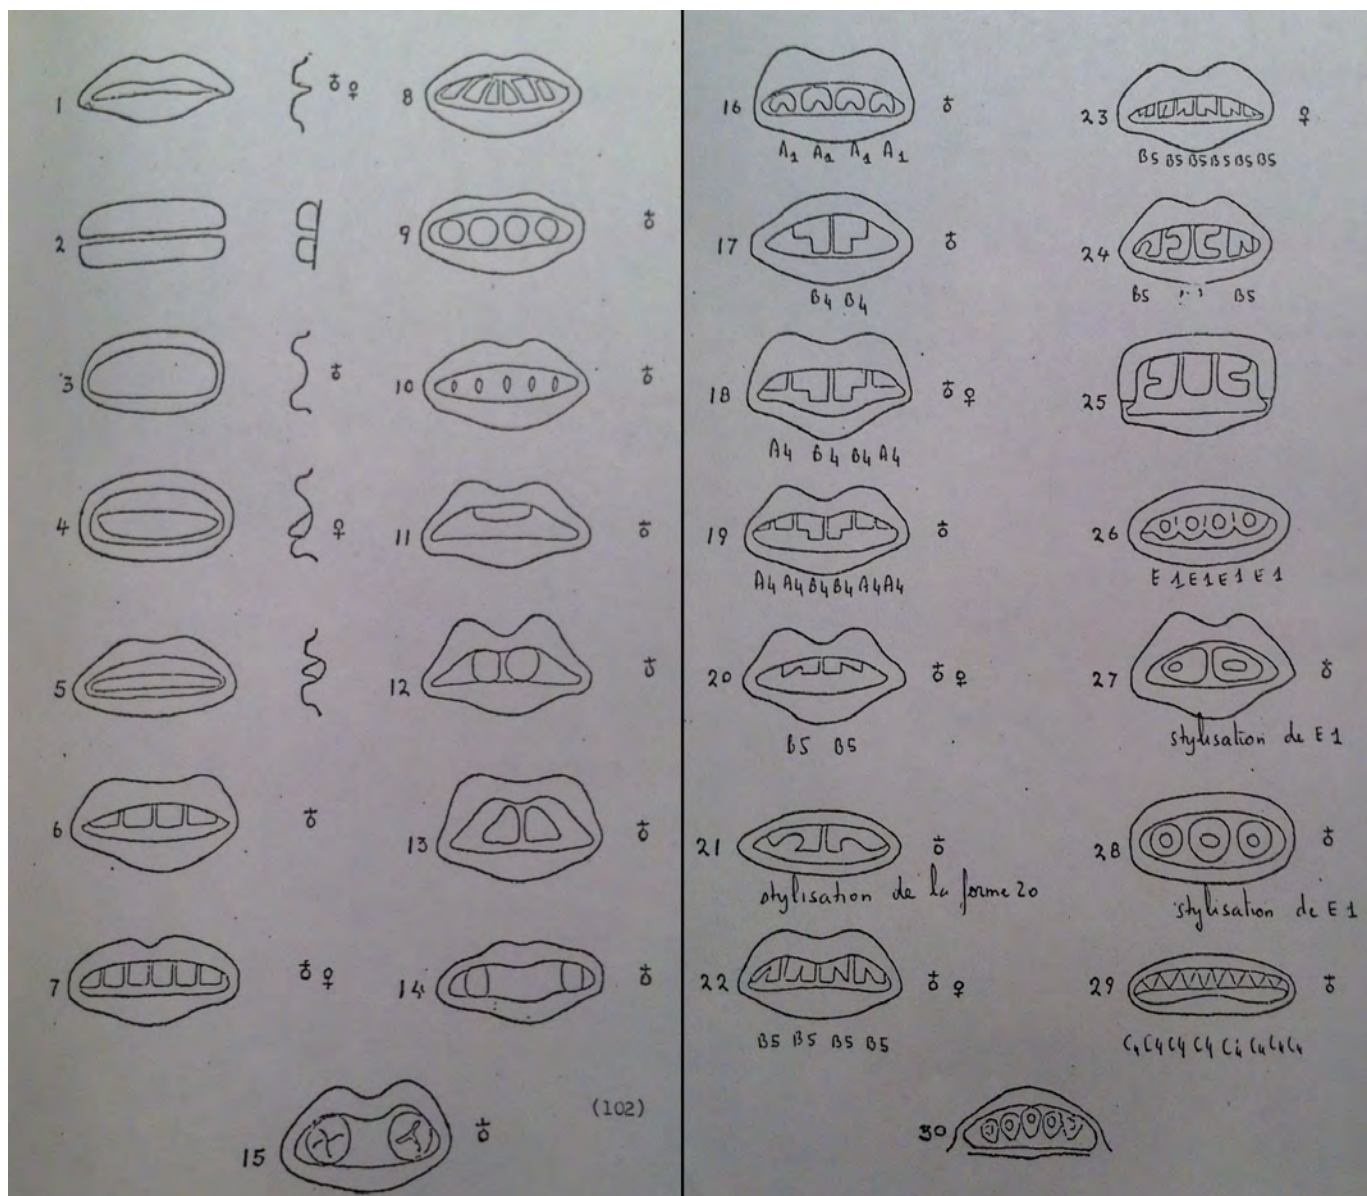 1 ♁ ♀
2
3 ♁
4 ♀
5
6 ♁
7 ♁ ♀
8
9 ♁
10 ♁
11 ♁
12 ♁
13 ♁
14 ♁
15 ♁
(102)
16 ♁
A1 A1 A1 A1
17 ♁
B4 B4
18 ♁ ♀
A4 B4 B4 A4
19 ♁
A4 A4 B4 B4 A4 A4
20 ♁ ♀
B5 B5
21 ♁
stylisation de la forme 20
22 ♁ ♀
B5 B5 B5 B5
23 ♀
B5 B5 B5 B5 B5 B5
24
B5 B5
25
26
E1 E1 E1 E1
27 ♁
stylisation de E1
28 ♁
stylisation de E1
29 ♁
C4 C4 C4 C4 C4 C4 C4 C4
30